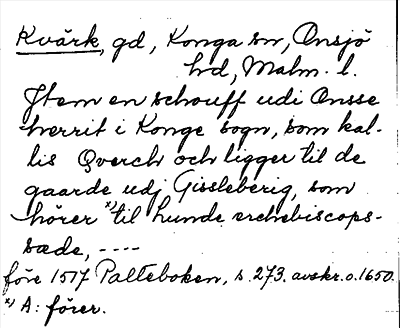 Kvärk, gd, Konga sn, Onsjö
hd, Malm. l.
Jtem en schouff udi Onsse
herrit i Konge sogn, som kal-
lis Qverch och ligger til de
gaarde udj Gissleberig, som
hörer x) til Lunde erchebiscops-
sæde, ----
före 1517 Palteboken, s. 273. avskr. o. 1650.
x) A: förer.